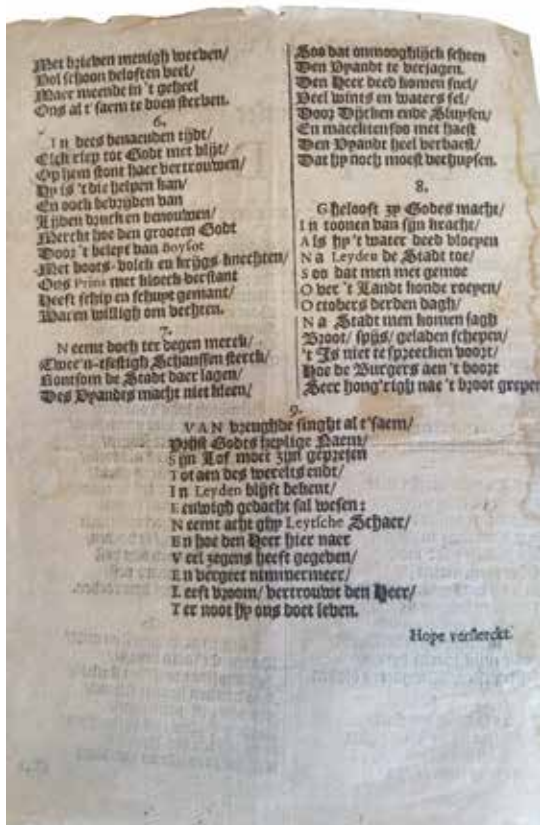 Met brieven menigh werven/
Vol schoon beloften veel/
Maer meende in 't geheel
Ons al t'saem te doen sterven.
6.
In dees benaeuden tijdt/
Elck riep tot Godt met vlijt/
Op hem stont haer vertrouwen/
Hy is 't die helpen kan/
En oock bevryden van
Lijden druck en benouwen/
Merckt hoe den grooten Godt
Door 't beleyt van Boysot
Met boots-volck en krijgs-knechten/
Ons Prins met kloeck verstant
Heeft schip en schuyt gemant/
Waren willigh om vechten.
7.
Neemt doch ter degen merck/
Twee'n-tsestigh Schanssen sterck/
Rontsom de Stadt daer lagen/
Des Vyandes macht niet kleen/
Soo dat onmooghlijck scheen
Den Vyandt te verjagen.
Den Heer deed komen snel/
Veel wints en waters fel/
Door Dijcken ende Sluysen/
En maecktensoo met haest
Den Vyandt heel verbaest/
Dat hy noch moest verhuysen.
8.
Ghelooft zy Godes macht/
In toonen van sijn kracht/
Als hy 't water deed vloeyen
Na Leyden de Stadt toe/
Soo dat men met gemoe
Over 't Landt konde roeyen/
Octobers derden dagh/
Na Stadt men komen sagh
Broot/ spijs/ geladen schepen/
't Is niet te spreecken voort/
Hoe de Burgers aen 't boort
Seer hong'righ nae 't broot grepen
9.
VAN vreughde singht al t'saem/
Prijst Godts heylige Naem/
Sijn Lof moet zijn gepresen
Tot aen des werelts endt/
In Leyden blijft bekent/
Eeuwigh gedacht sal wesen:
Neemt acht ghy Leytsche Schaer/
En hoe den Heer hier naer
Veel zegens heeft gegeven/
En vergeet nimmermeer/
Leeft vroom/ vertrouwt den Heer/
Ter noot hy ons doet leven.
Hope versterckt.